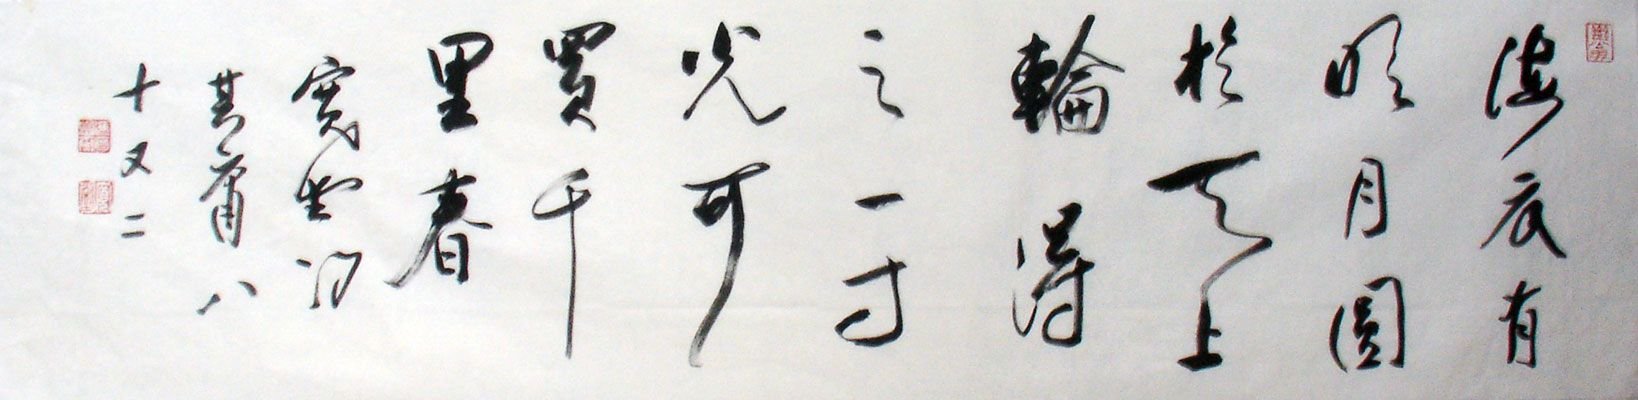 海底有
明月圓
於天上
輪得
之一寸
光可
買千
里春
寬堂馮
其庸八
十又二